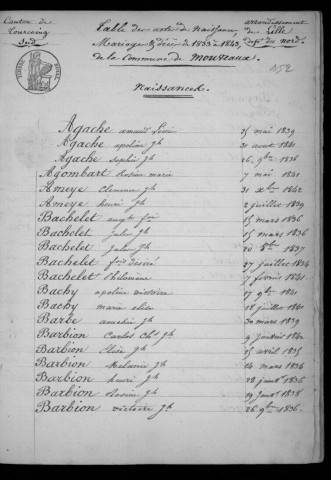 Canton de
Tourcoing
Sud
Table des actes de Naissances,
Mariages & décès de 1833 à 1843,
de la Commune de Mouveaux.
arrondissement
de Lille
dépt du nord.
152
Naissances
Agache amand Louis 25 mai 1839
Agache apoline Jh 31 aout 1841
Agache Sophie Jh 26 9bre 1836
Agombart Rosine marie 7 mai 1841
Ameye Clemence Jh 31 Xbre 1842
Ameye henri Jh 2 juillet 1839
Bachelet 15 mars 1836
Bachelet Julie Jh 15 mars 1836
Bachelet Julien Jh 20 8bre 1837
Bachelet désiré 27 juillet 1834
Bachelet Philomène 7 février 1841
Bachy apoline victoire 17 9bre 1841
Bachy marie elise 18 juillet 1840
Barbe amelie Jh 30 mars 1839
Barbion Carlos Ch. Jh 9 janvier 1841
Barbion Elise Jh 15 avril 1835
Barbion Melanie Jh 24 mars 1836
Barbion henri Jh 28 janvr 1836
Barbion Rosine Jh 19 janvr 1838
Barbion victoire Jh 26 9bre 1836.